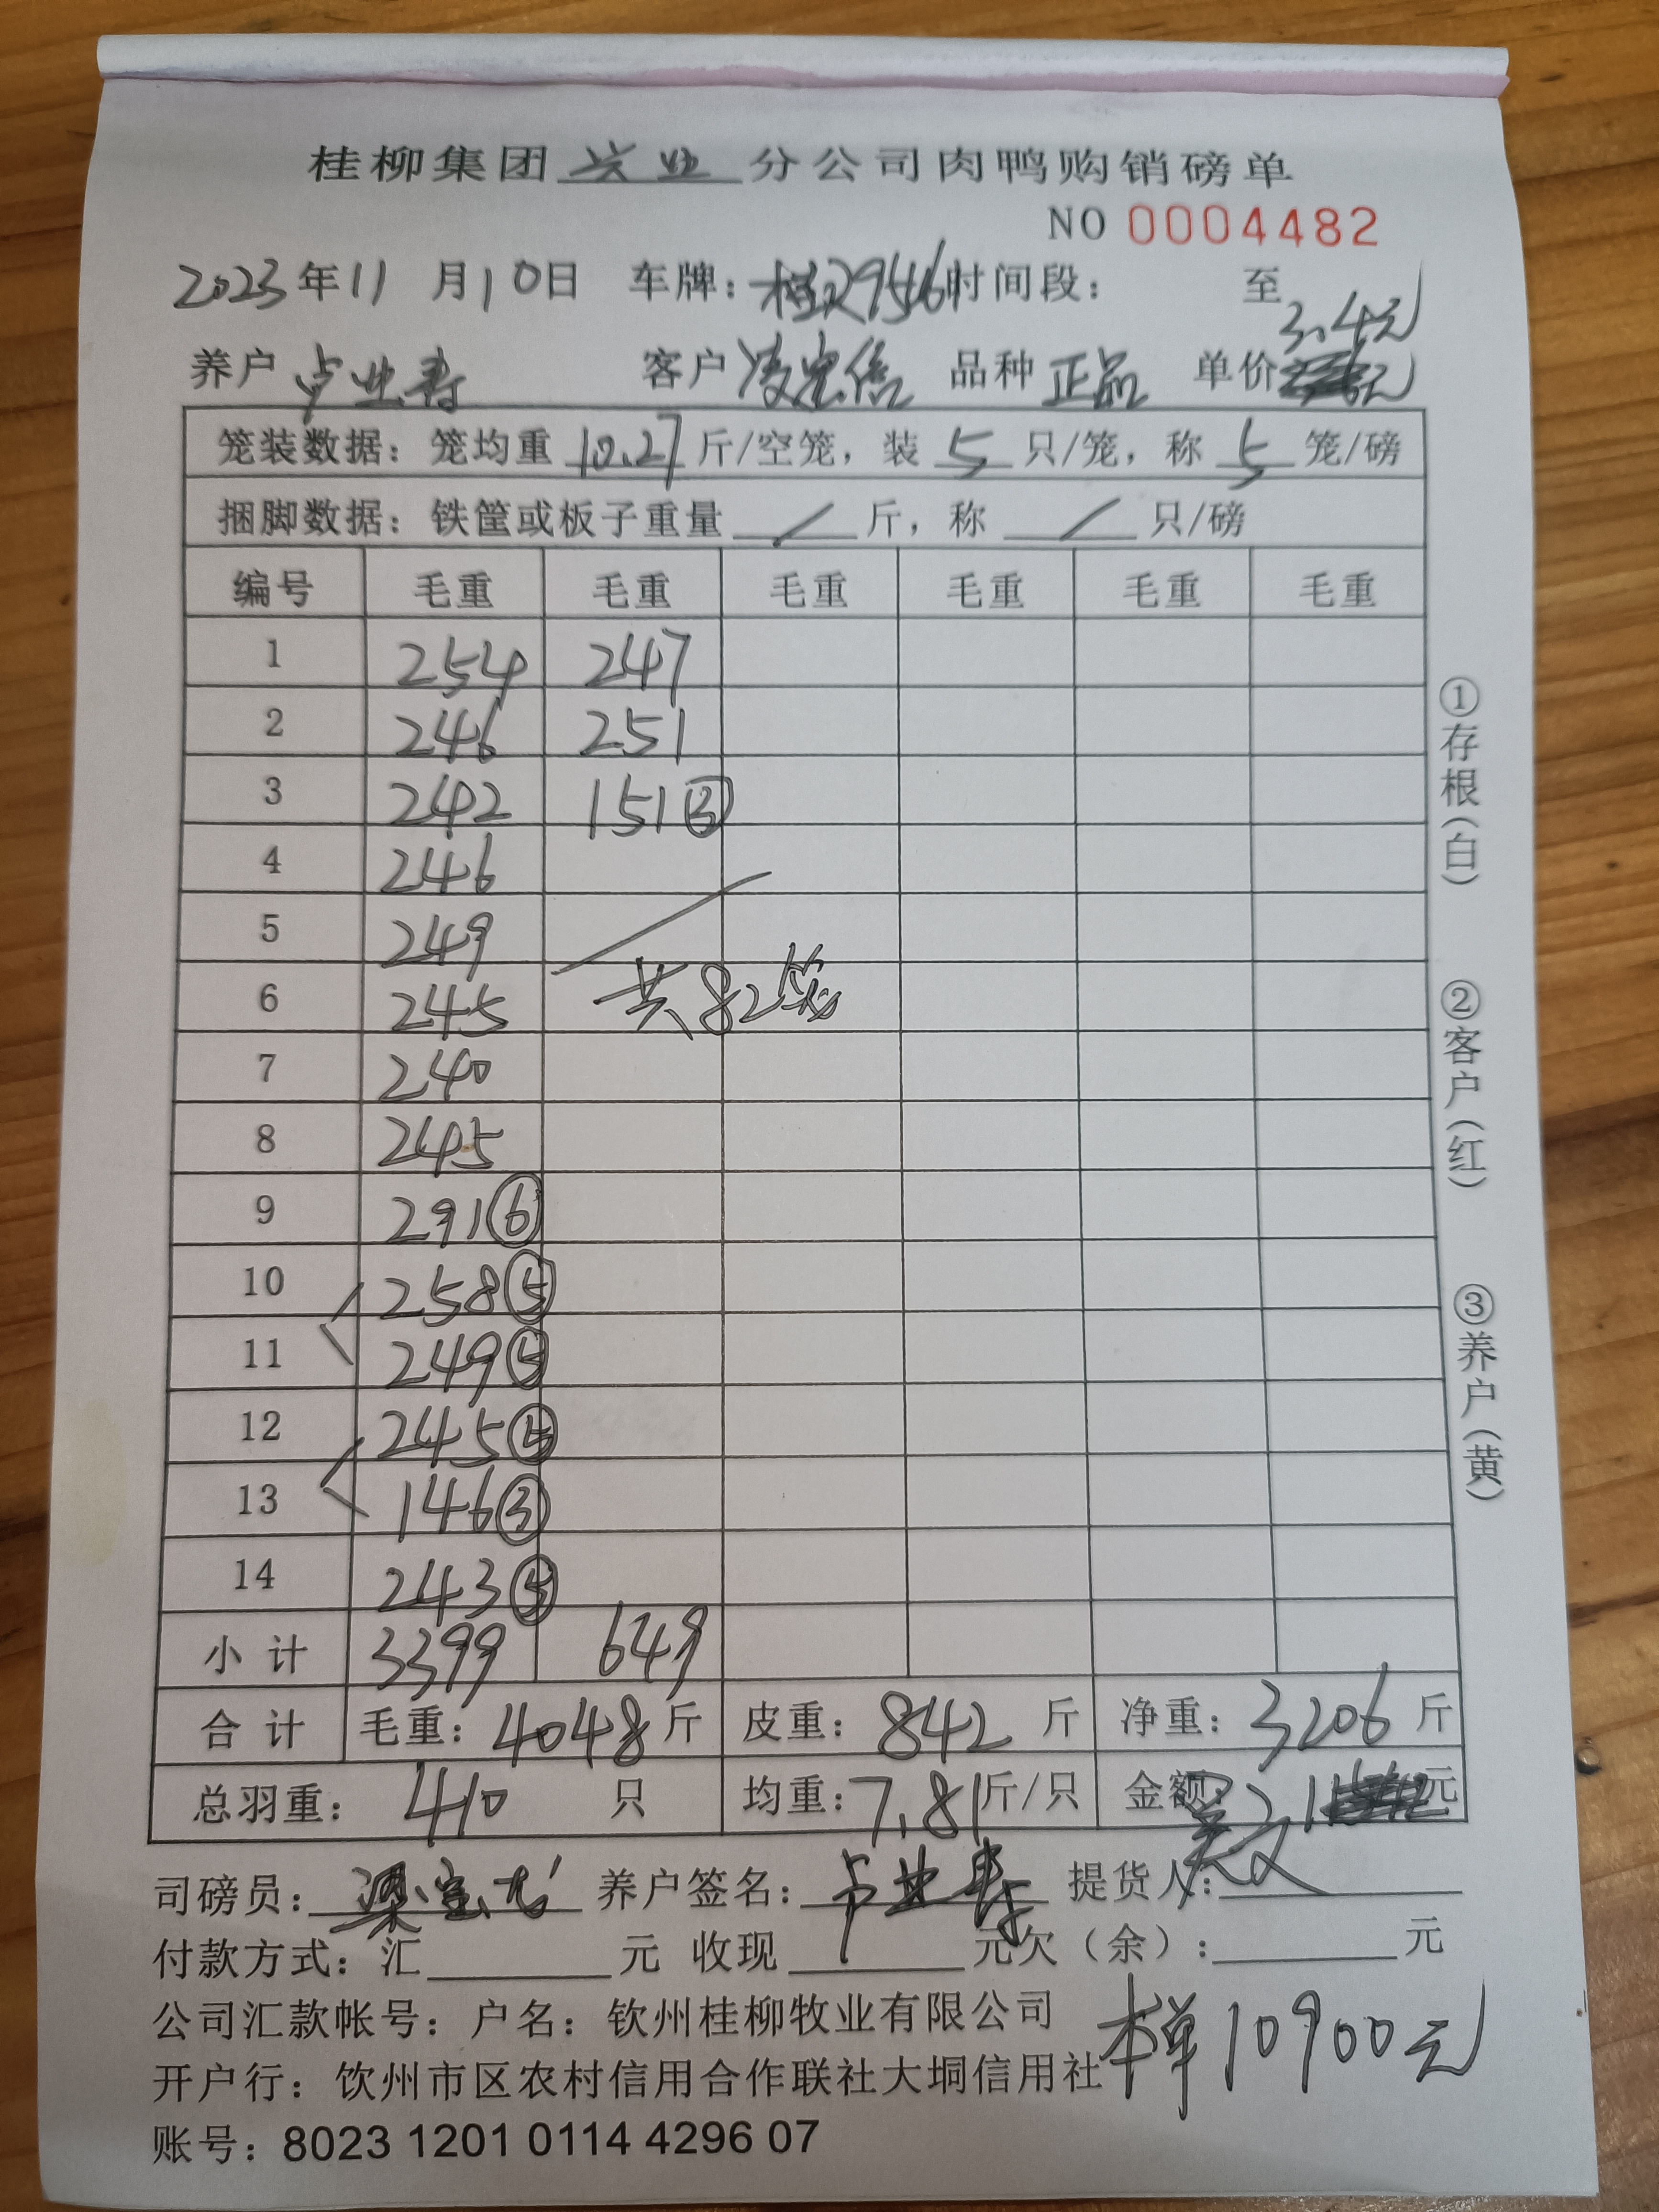 桂柳集团兴业分公司肉鸭购销磅单
NO 0004482
2023年11月10日 车牌：桂 29546 时间段： 至
3.4元
养户 卢业寿 客户 凌忠信 品种 正品 单价
笼装数据：笼均重 10.27 斤/空笼，装 5 只/笼，称 5 笼/磅
捆脚数据：铁筐或板子重量 / 斤，称 / 只/磅
编号 毛重 毛重 毛重 毛重 毛重 毛重
1 254 247
2 246 251
3 242 151③
4 246
5 249
6 245 共82笼
7 240
8 245
9 291⑥
10 258⑤
11 249⑤
12 245⑤
13 146③
14 243⑤
小计 3399 649
合计 毛重：4048斤 皮重：842斤 净重：3206斤
总羽重：410 只 均重：7.81斤/只 金额： 元
司磅员： 养户签名：卢业寿 提货人：
付款方式：汇 元 收现 元欠（余）： 元
公司汇款帐号：户名：钦州桂柳牧业有限公司
本单10900元
开户行：钦州市区农村信用合作联社大垌信用社
账号：8023 1201 0114 4296 07
①存根（白）
②客户（红）
③养户（黄）